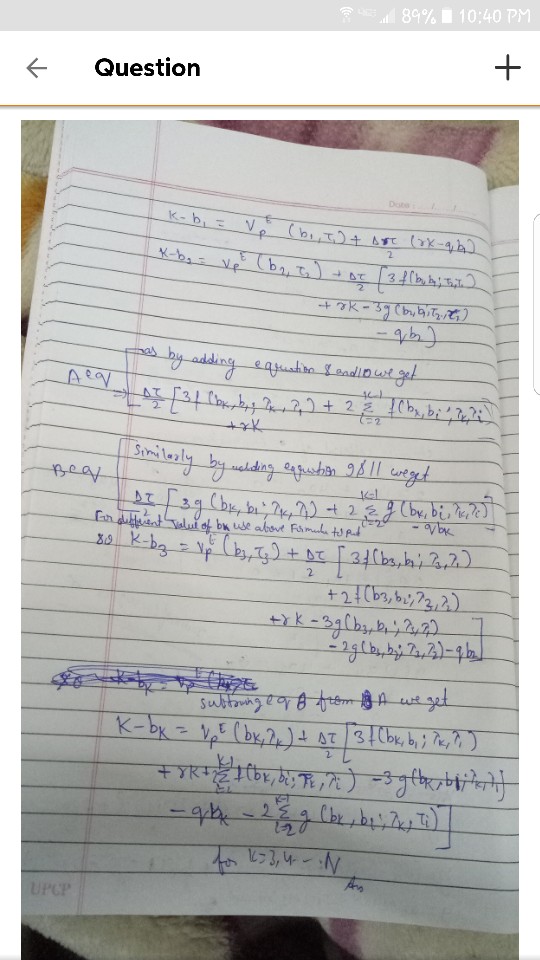 89% 10:40 PM
Question
Date : / /
K-b₁ = Vₚᴱ (b₁, τ₁) + Δτ/2 (rK-qb₁)
K-b₂ = Vₚᴱ (b₂, τ₂) + Δτ/2 [3f(b₂,b₁; τ₂,τ₁)
+ rK - 3g(b₂,b₁,τ₂,τ₁)
- qb₂)
as by adding equation 8 and 10 we get
A eqⁿ
⇒ Δτ/2 [3f(bₖ,b₁; τₖ,τ₁) + 2 Σᵢ₌₂ᴷ⁻¹ f(bₖ,bᵢ; τₖ,τᵢ)
+rK
Similarly by adding equation 9 & 11 we get
B eqⁿ
Δτ/2 [3g(bₖ,b₁; τₖ,τ₁) + 2 Σᵢ₌₂ᴷ⁻¹ g(bₖ,bᵢ,τₖ,τᵢ)]
- qbₖ
For different value of bₖ use above Formula to put
so K-b₃ = Vₚᴱ(b₃,τ₃) + Δτ/2 [3f(b₃,b₁; τ₃,τ₁)
+2f(b₃,b₂; τ₃,τ₂)
+rK - 3g(b₃,b₁; τ₃,τ₁)
- 2g(b₃,b₂; τ₃,τ₂)-qb₃]
eq B from A we get
K-bₖ = Vₚᴱ(bₖ,τₖ) + Δτ/2 [3f(bₖ,b₁; τₖ,τ₁)
+ rK + 2Σᵢ₌₂ᴷ⁻¹ f(bₖ,bᵢ; τₖ,τᵢ) - 3g(bₖ,b₁;τₖ,τ₁)
- qbₖ - 2 Σᵢ₌₂ᴷ⁻¹ g (bₖ,bᵢ; τₖ,τᵢ)]
for K=3,4 - .. N
Ans